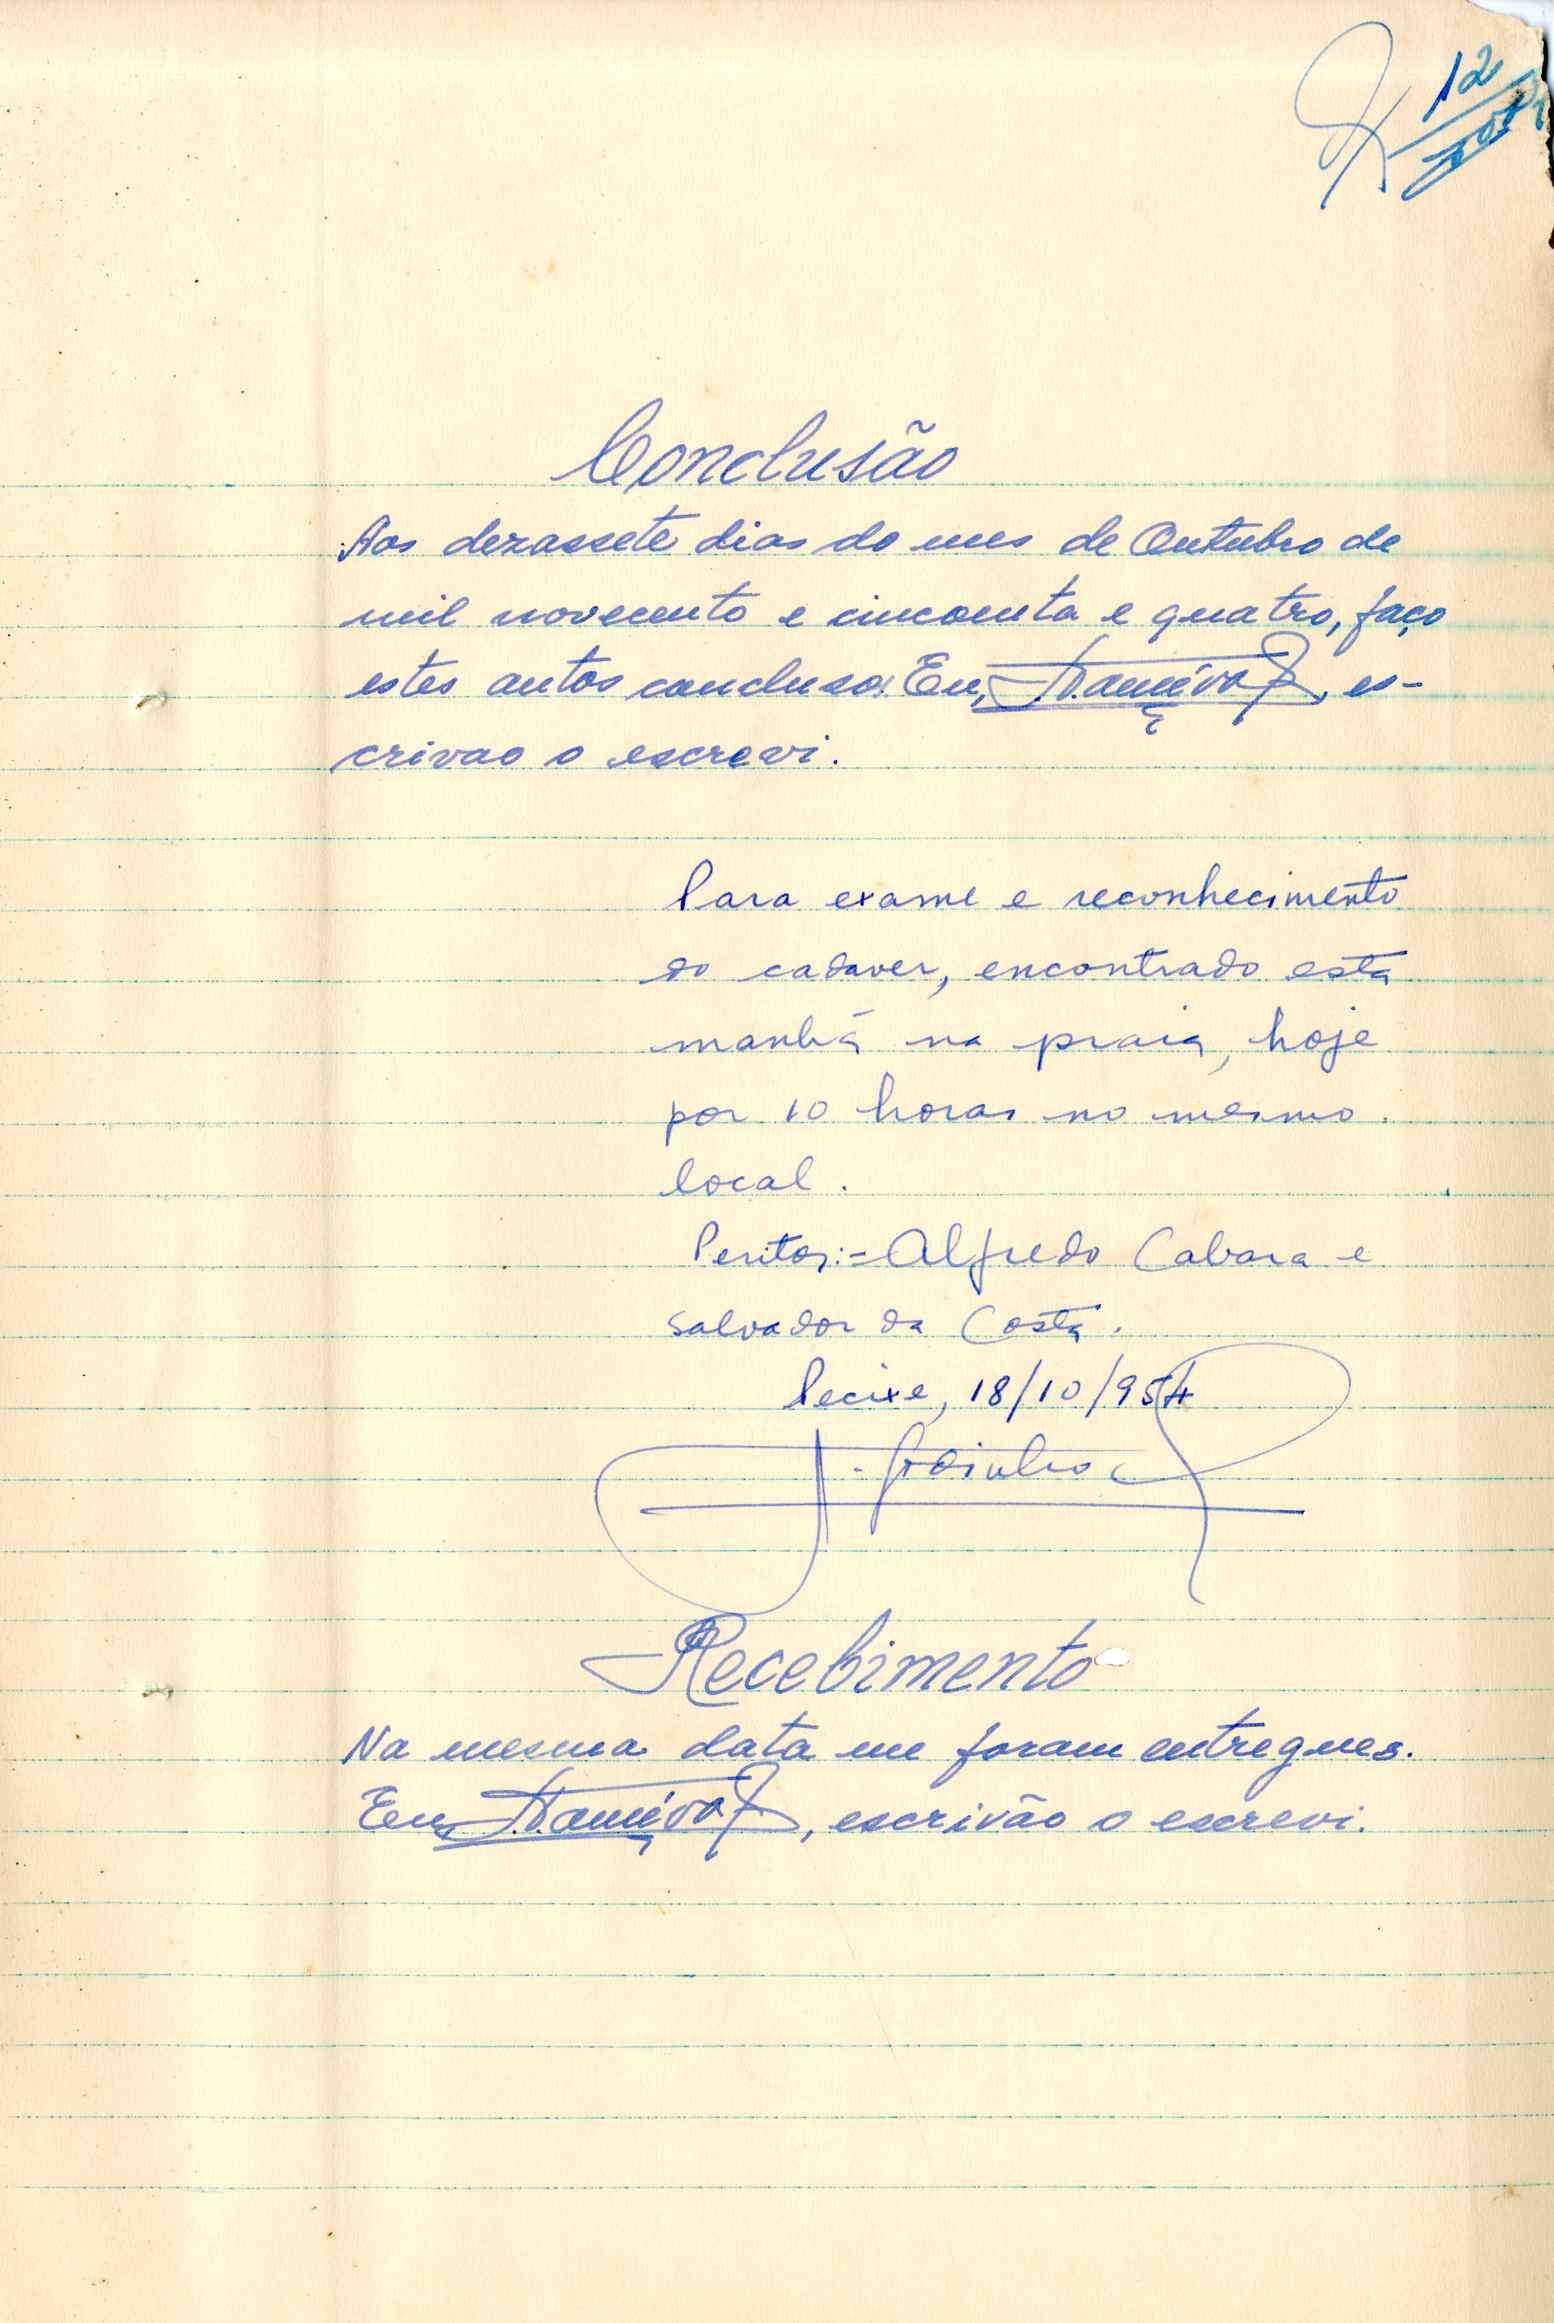 12
Conclusão
Aos dezassete dias do mes de Outubro de
mil novecento e cincoenta e quatro, faço
estes autos concluso. Eu, , es-
crivao o escrevi.
Para exame e reconhecimento
do cadaver, encontrado esta
manhã na praia, hoje
por 10 horas no mesmo
local.
Peritos:= Alfredo Cabara e
Salvador da Costa.
Pecixe, 18/10/954
Recebimento
Na mesma data me foram entregues.
Eu, , escrivão o escrevi.